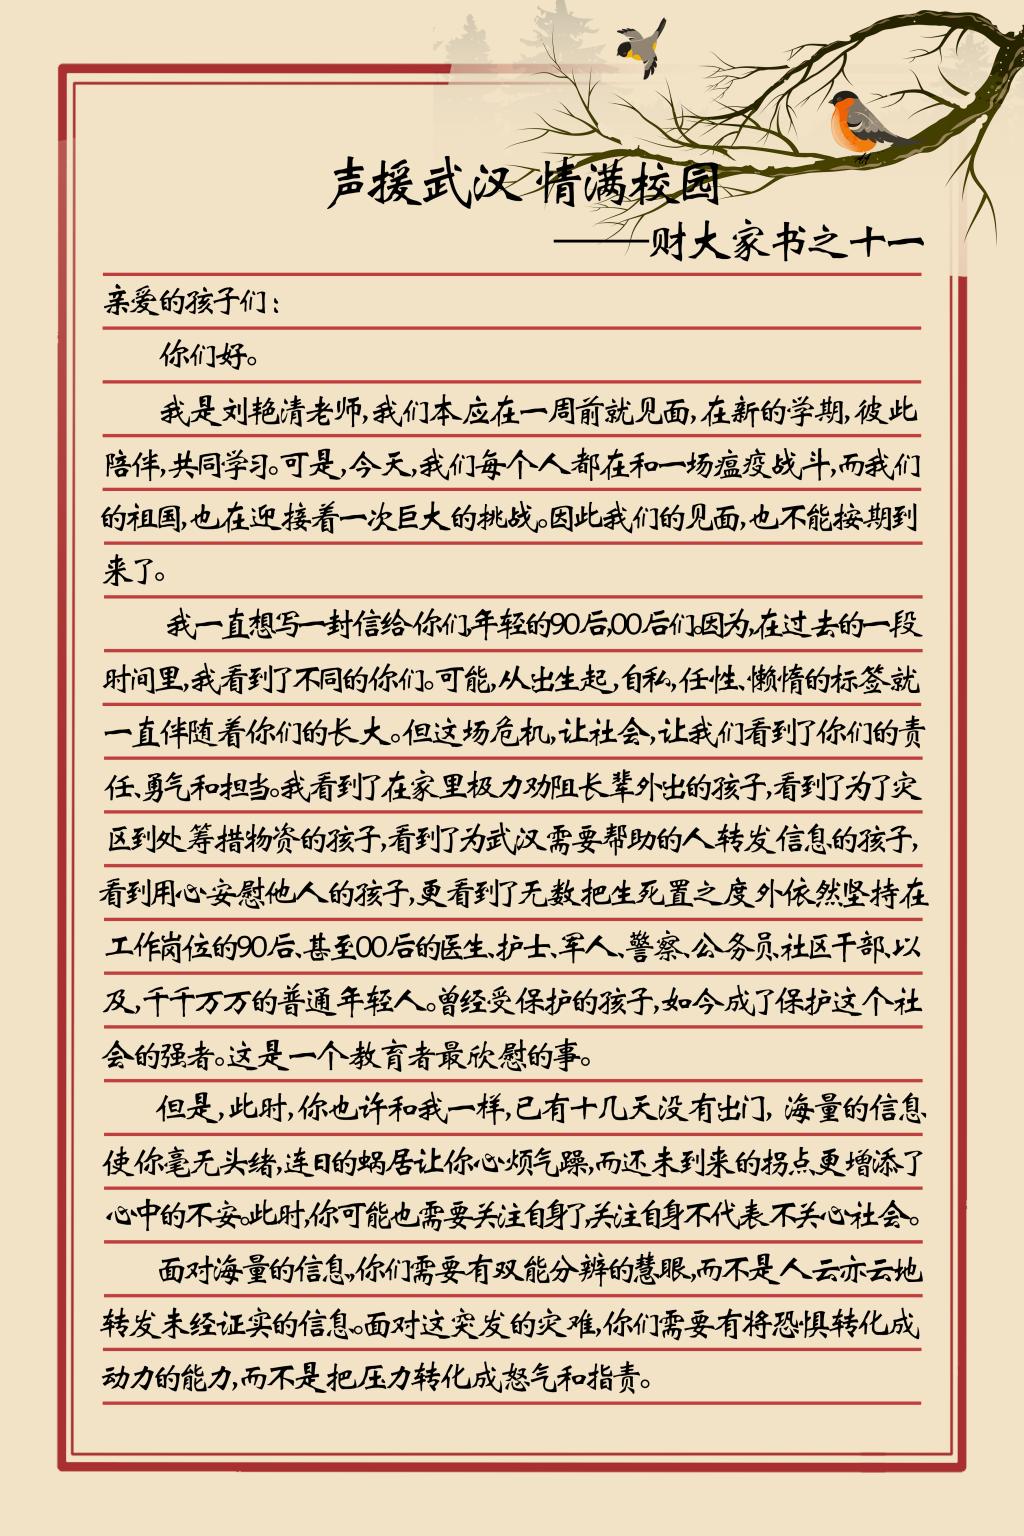 声援武汉 情满校园
——财大家书之十一
亲爱的孩子们：
你们好。
我是刘艳清老师,我们本应在一周前就见面,在新的学期,彼此
陪伴,共同学习。可是,今天,我们每个人都在和一场瘟疫战斗,而我们
的祖国,也在迎接着一次巨大的挑战。因此我们的见面,也不能按期到
来了。
我一直想写一封信给你们,年轻的90后,00后们。因为,在过去的一段
时间里,我看到了不同的你们。可能,从出生起,自私,任性、懒惰的标签就
一直伴随着你们的长大。但这场危机,让社会,让我们看到了你们的责
任、勇气和担当。我看到了在家里极力劝阻长辈外出的孩子,看到了为了灾
区到处筹措物资的孩子,看到了为武汉需要帮助的人转发信息的孩子,
看到用心安慰他人的孩子,更看到了无数把生死置之度外依然坚持在
工作岗位的90后、甚至00后的医生、护士、军人、警察、公务员、社区干部、以
及,千千万万的普通年轻人。曾经受保护的孩子,如今成了保护这个社
会的强者。这是一个教育者最欣慰的事。
但是,此时,你也许和我一样,已有十几天没有出门, 海量的信息
使你毫无头绪,连日的蜗居让你心烦气躁,而还未到来的拐点更增添了
心中的不安。此时,你可能也需要关注自身了,关注自身不代表不关心社会。
面对海量的信息,你们需要有双能分辨的慧眼,而不是人云亦云地
转发未经证实的信息。面对这突发的灾难,你们需要有将恐惧转化成
动力的能力,而不是把压力转化成怒气和指责。